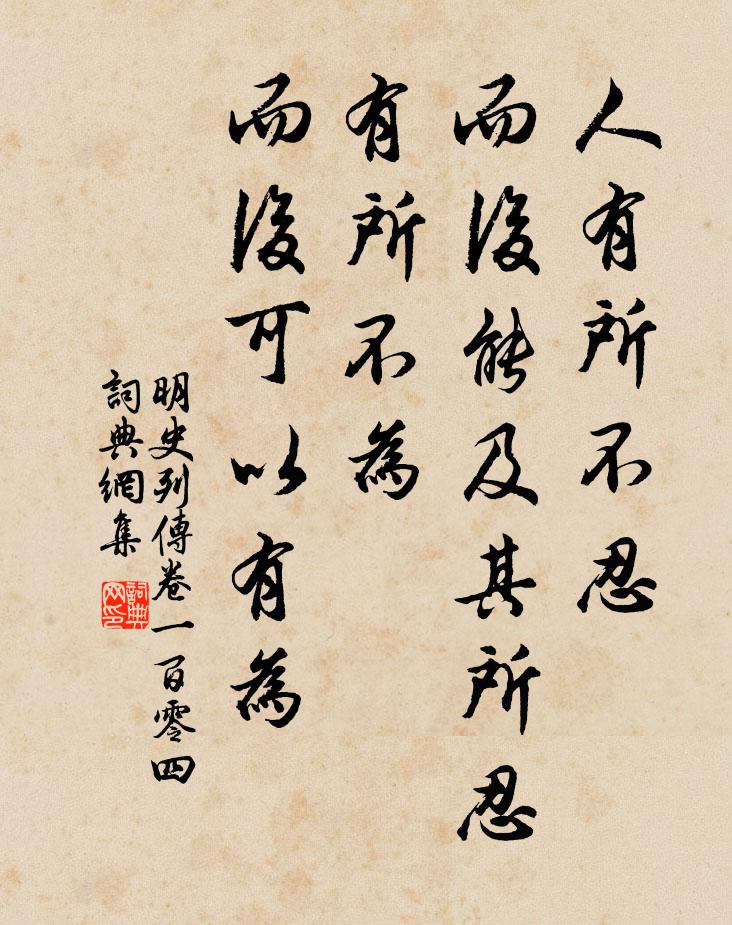 人有所不忍
而後能及其所忍
有所不為
而後可以有為
明史列傳卷一百零四
詞典網集
詞典
网印